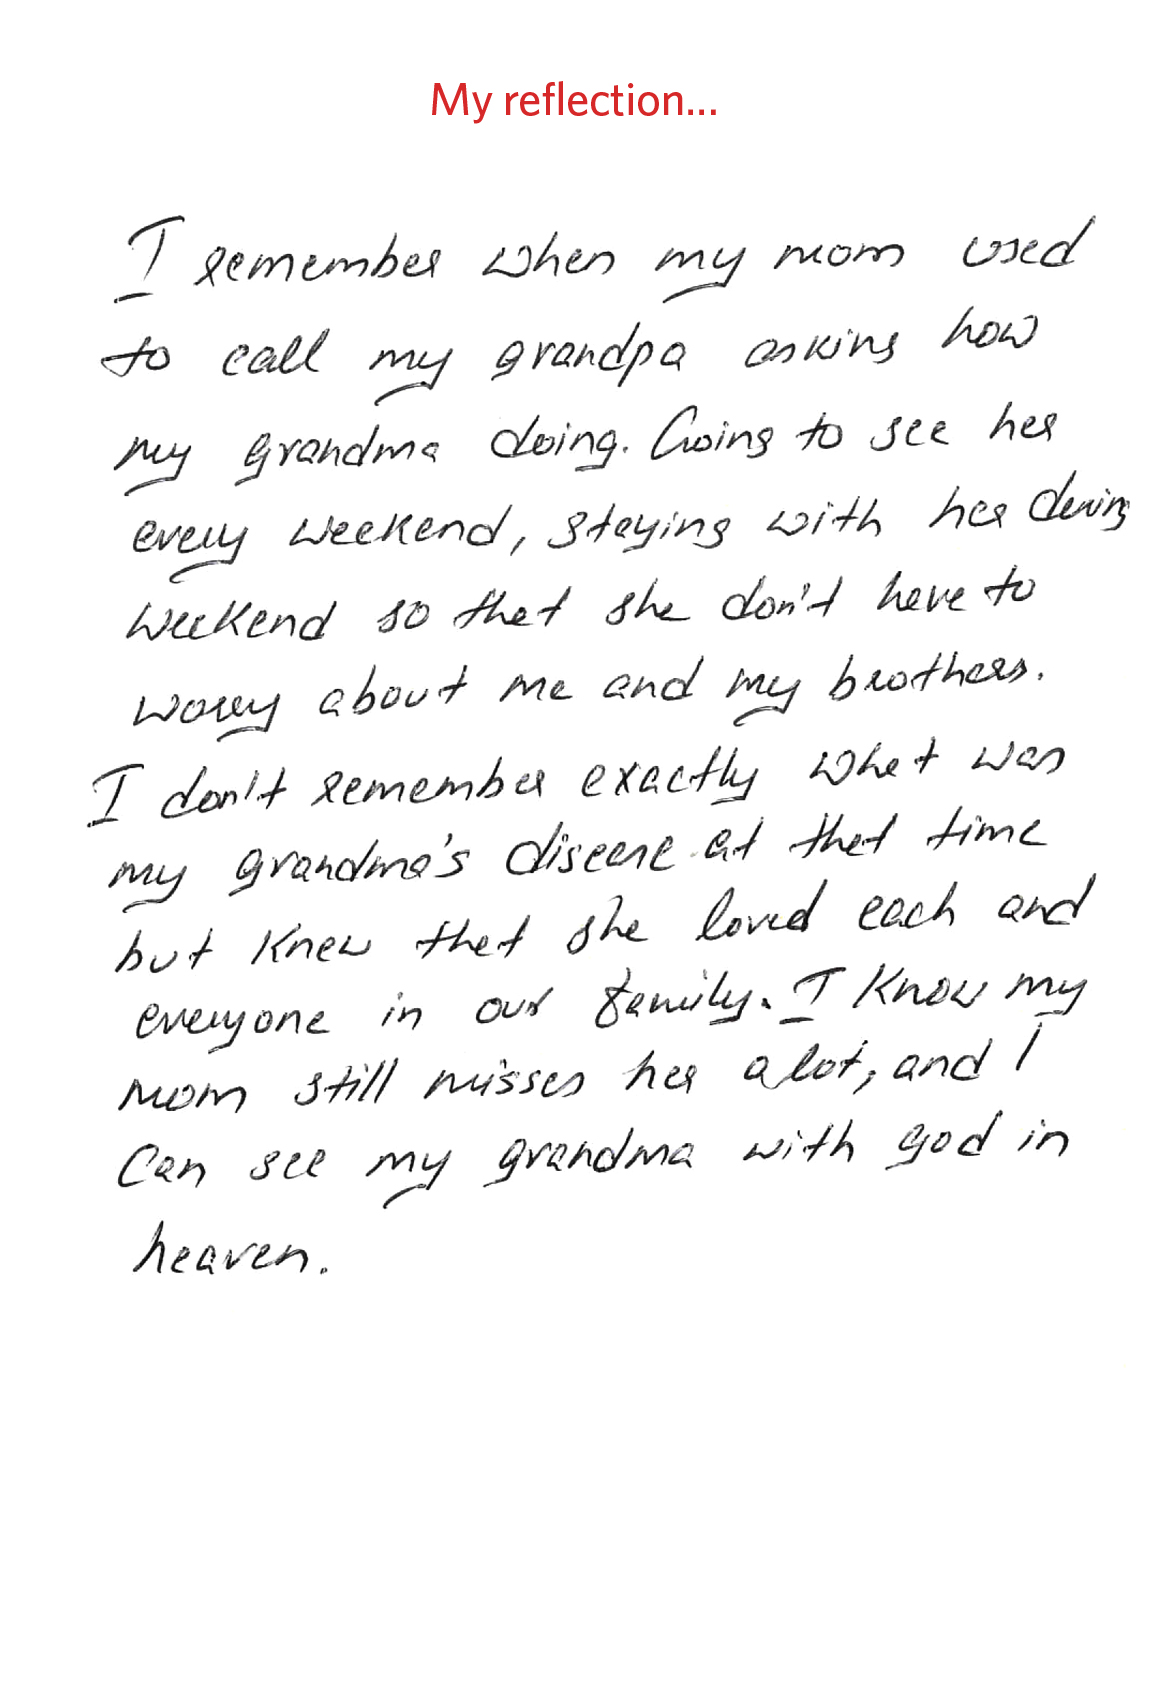 My reflection...
I remember when my mom used
to call my grandpa asking how
my grandma doing. Going to see her
every weekend, staying with her during
weekend so that she don't have to
worry about me and my brothers.
I don't remember exactly what was
my grandma's disease at that time
but knew that she loved each and
everyone in our family. I know my
mom still misses her a lot, and I
can see my grandma with god in
heaven.